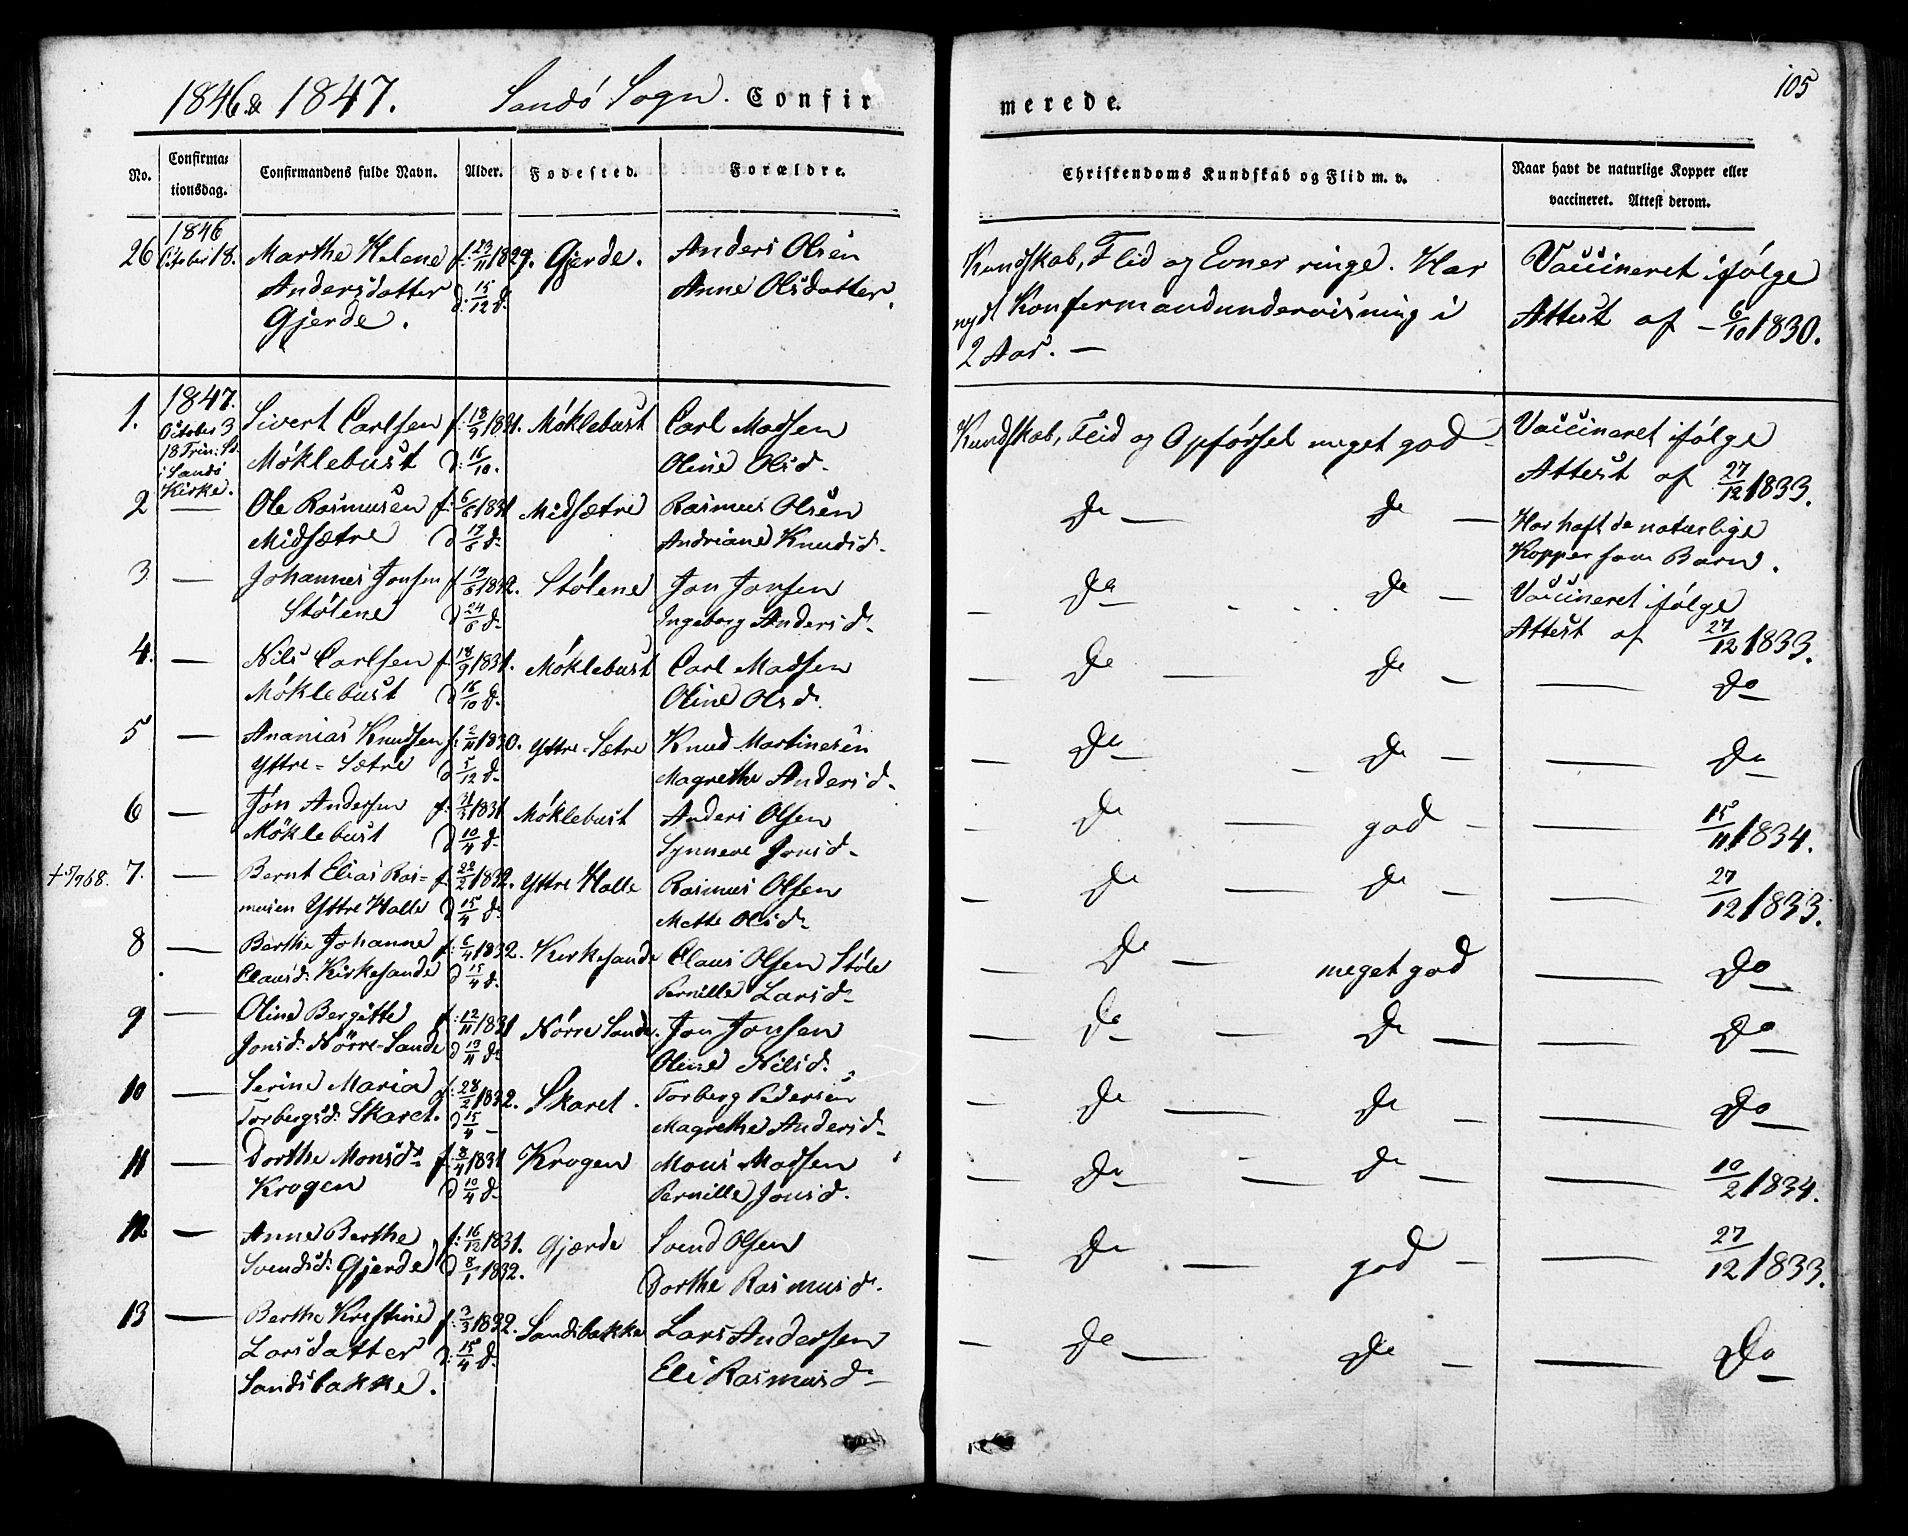 1846 & 1847. Sandö Sogn. Confir
merede.
105
No.
Confirma-
tionsdag.
Confirmandens fulde Navn.
Alder.
Fødested.
Forældre.
Christendoms Kundskab og Flid m. v.
Naar havt de naturlige Kopper eller
vaccineret. Attest derom.
1846
26 October 18. Marthe Helene f: 23/11 1829. Gjerde. Anders Olsen
Andersdatter d: 15/12 d. Anne Olsdatter.
Gjerde.
Kundskab, Flid og Evner ringe. Har
nydt Konfermandundervisning i
2 Aar. —
Vaccineret ifølge
Attest af - 6/10 1830.
1847.
1. October 3 Sivert Carlsen f: 18/9 1831. Möklebust Carl Madsen
18 Trin: S. Möklebust d: 16/10. Oline Olsd.
i Sandö
Kirke.
Kundskab, Flid og Opførsel meget god
Vaccineret ifølge
Attest af 27/12 1833.
2 — Ole Rasmusen f. 6/6 1831 Midsætre Rasmus Olsen
Midsætre d 19/6 d. Andriane Knudsd.
Do — Do —
Har haft de naturlige
Kopper som Barn.
3 — Johannes Jonsen f. 19/6 1832. Stölene Jon Jonsen
Stölene d 24/6 d. Ingeborg Andersd.
— Do — Do —
Vaccineret ifølge
Attest af 27/12 1833.
4. — Nils Carlsen f. 18/9 1831. Möklebust Carl Madsen
Möklebust d 16/10 d. Oline Olsd.
Do — Do —
— Do
5 — Ananias Knudsen f. 2/11 1830. Yttre-Sætre Knud Martinesen
Yttre-Sætre d 5/12 d. Magrethe Andersd.
— Do — Do —
— Do
6 — Jon Andersen f. 31/3 1831 Möklebust Anders Olsen
Möklebust d 10/4 d. Synneve Jonsd.
— Do — god —
— 15/11 1834.
7. — Bernt Elias Ras= f. 22/2 1832. Yttre Halle Rasmus Olsen
musen Yttre Halle d 15/4 d. Mette Olsd.
— Do — Do —
— 27/12 1833.
8 — Berthe Johanne f. 6/4 1832. Kirkesande Claus Olsen Støle
Clausd. Kirkesande d 15/4 d. Pernille Larsd.
— Do — meget god
— Do
9 — Oline Bergitte f. 12/11 1831 Nörre Sande. Jon Jonsen
Jonsd. Nörre-Sande d 13/11 d. Oline Nilsd.
— Do — Do —
— Do
10 — Serine Maria f. 28/2 1832. Skaret. Torberg Pedersen
Torbergsd. Skaret. d 15/4 — Magrethe Andersd.
— Do — Do —
— Do
11 — Dorthe Monsd. f. 8/4 1831 Krogen Mons Madsen
Krogen d 10/4 d. Pernille Jonsd.
— Do — Do —
— 10/2 1834.
12. — Anne Berthe f. 16/12 1831. Gjærde Svend Olsen
Svendsd. Gjerde d 8/1 1832. Dorthe Rasmusd.
— Do — god —
— 27/12 1833.
13 — Berthe Kristine f. 3/3 1832. Sandsbakke Lars Andersen
Larsdatter d: 15/4 d. Eli Rasmusd.
Sandsbakke.
— Do — Do —
— Do